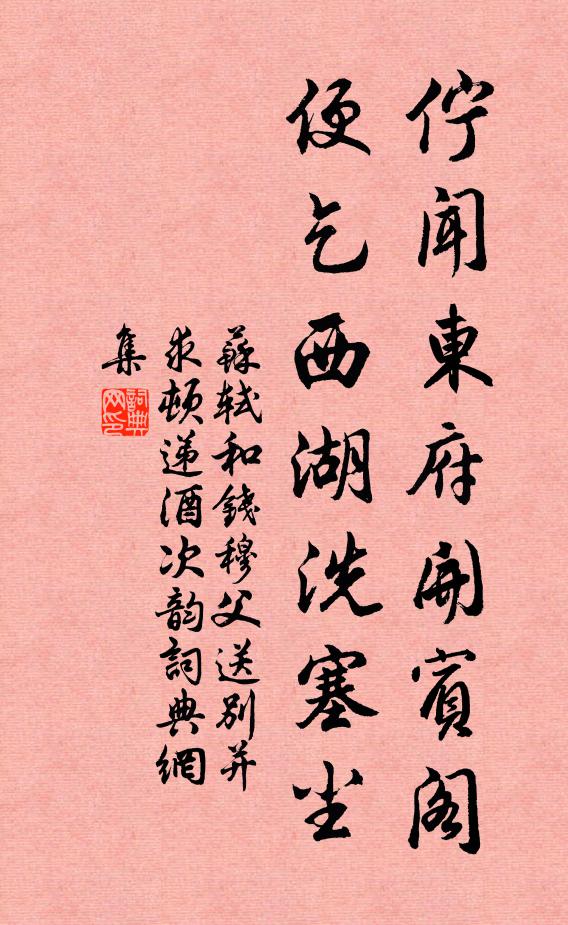 佇聞東府開賓閣
便乞西湖洗塞尘
蘇軾和錢穆父送別并
求頓递酒次韵詞典網
集
詞典
网印